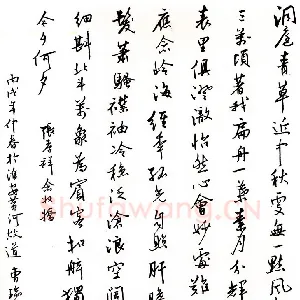 洞庭青草近中秋更無一點風
三萬頃著我扁舟一葉素月分輝
表里俱澄澈怡然心會妙處難
應念嶺海經年孤光自照肝胆
髮蕭騷襟袖冷穩泛滄浪空闊
細斟北斗萬象為賓客扣舷獨
今夕何夕
張孝祥念奴嬌
丙戌年仲春於淮安
shufawang.cn